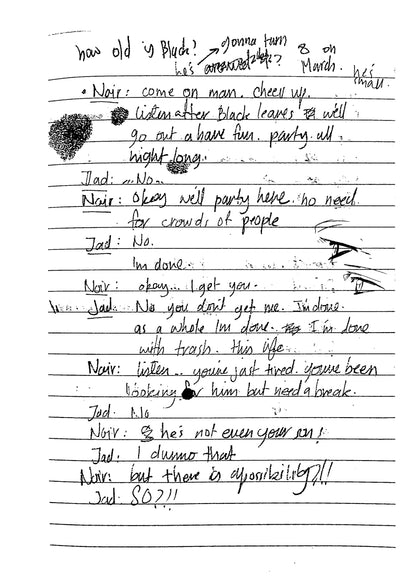 how old is Black? gonna turn 8 on
he's around 7? March. he's
small.
• Nair: come on man. cheer up.
listen after Black leaves we'll
go out & have fun. party all
night long.
Jad: ...No...
Nair: okay we'll party here. no need
for crowds of people
Jad: No.
I'm done.
Nair: okay... I get you.
Jad: No you don't get me. I'm done.
as a whole I'm done. I'm done
with trash. this life.
Nair: listen... you're just tired. you've been
looking for him but need a break.
Jad: No
Nair: he's not even your son!
Jad: I dunno that
Nair: but there is a possibility?!!
Jad: SO?!!